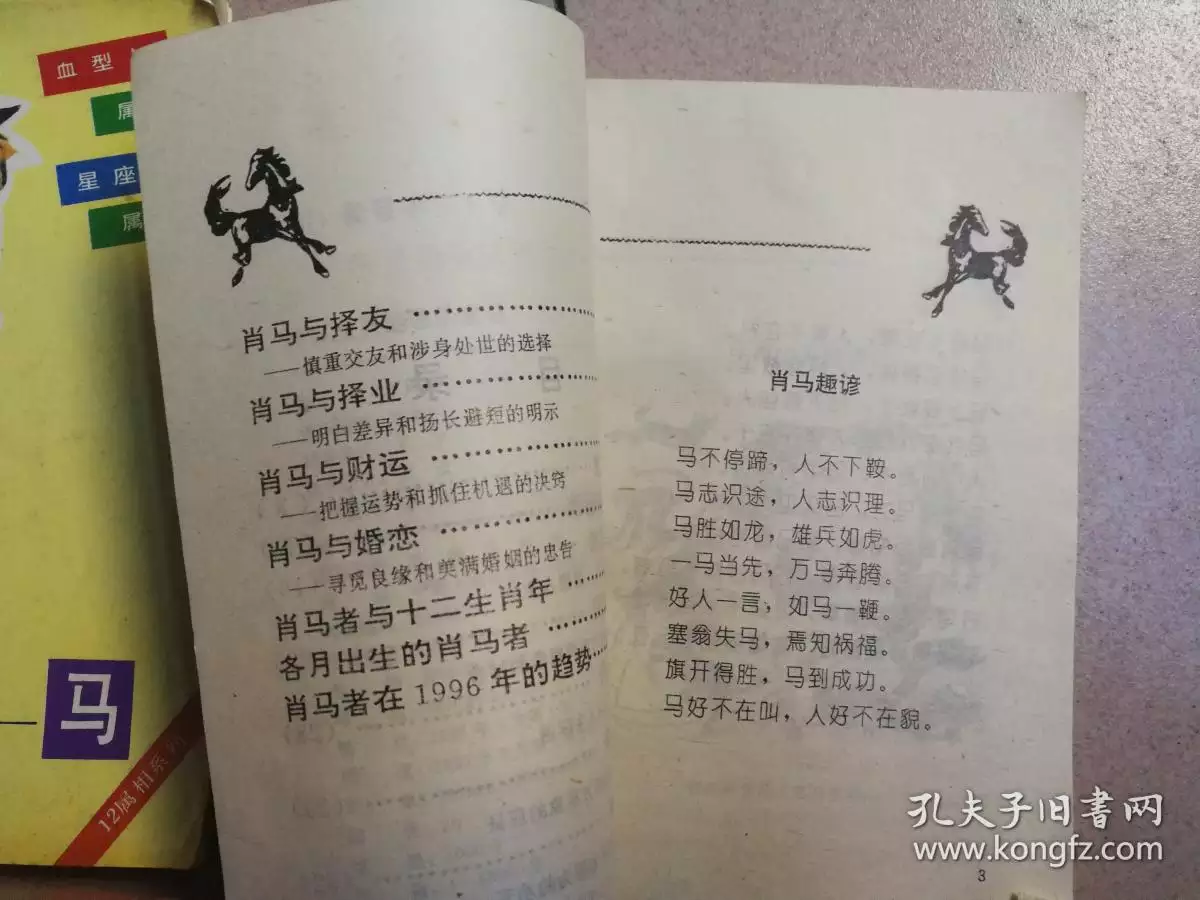 血型
属
星座
属
马
12属相系列
肖马与择友…………
——慎重交友和涉身处世的选择
肖马与择业…………
——明白差异和扬长避短的明示
肖马与财运…………
——把握运势和抓住机遇的决窍
肖马与婚恋…………
——寻觅良缘和美满婚姻的忠告
肖马者与十二生肖年……
各月出生的肖马者……
肖马者在1996年的趋势……
肖马趣谚
马不停蹄，人不下鞍。
马志识途，人志识理。
马胜如龙，雄兵如虎。
一马当先，万马奔腾。
好人一言，如马一鞭。
塞翁失马，焉知祸福。
旗开得胜，马到成功。
马好不在叫，人好不在貌。
3
孔夫子旧书网
www.kongfz.com